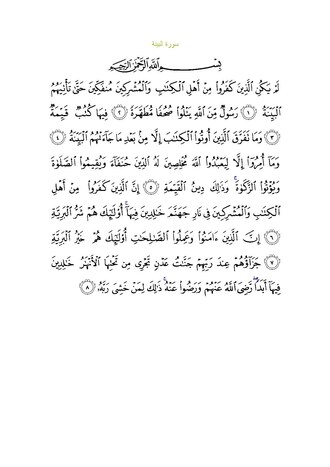 سورة البينة
بِسْمِ اللَّهِ الرَّحْمَٰنِ الرَّحِيمِ
لَمْ يَكُنِ الَّذِينَ كَفَرُوا مِنْ أَهْلِ الْكِتَابِ وَالْمُشْرِكِينَ مُنفَكِّينَ حَتَّىٰ تَأْتِيَهُمُ
الْبَيِّنَةُ ﴿١﴾ رَسُولٌ مِّنَ اللَّهِ يَتْلُوا صُحُفًا مُّطَهَّرَةً ﴿٢﴾ فِيهَا كُتُبٌ قَيِّمَةٌ
﴿٣﴾ وَمَا تَفَرَّقَ الَّذِينَ أُوتُوا الْكِتَابَ إِلَّا مِن بَعْدِ مَا جَاءَتْهُمُ الْبَيِّنَةُ ﴿٤﴾
وَمَا أُمِرُوا إِلَّا لِيَعْبُدُوا اللَّهَ مُخْلِصِينَ لَهُ الدِّينَ حُنَفَاءَ وَيُقِيمُوا الصَّلَوٰةَ
وَيُؤْتُوا الزَّكَوٰةَ ۚ وَذَٰلِكَ دِينُ الْقَيِّمَةِ ﴿٥﴾ إِنَّ الَّذِينَ كَفَرُوا مِنْ أَهْلِ
الْكِتَابِ وَالْمُشْرِكِينَ فِي نَارِ جَهَنَّمَ خَالِدِينَ فِيهَا ۚ أُولَٰئِكَ هُمْ شَرُّ الْبَرِيَّةِ
﴿٦﴾ إِنَّ الَّذِينَ ءَامَنُوا وَعَمِلُوا الصَّالِحَاتِ أُولَٰئِكَ هُمْ خَيْرُ الْبَرِيَّةِ
﴿٧﴾ جَزَاؤُهُمْ عِندَ رَبِّهِمْ جَنَّاتُ عَدْنٍ تَجْرِي مِن تَحْتِهَا الْأَنْهَارُ خَالِدِينَ
فِيهَا أَبَدًا ۖ رَّضِيَ اللَّهُ عَنْهُمْ وَرَضُوا عَنْهُ ۚ ذَٰلِكَ لِمَنْ خَشِيَ رَبَّهُ ﴿٨﴾